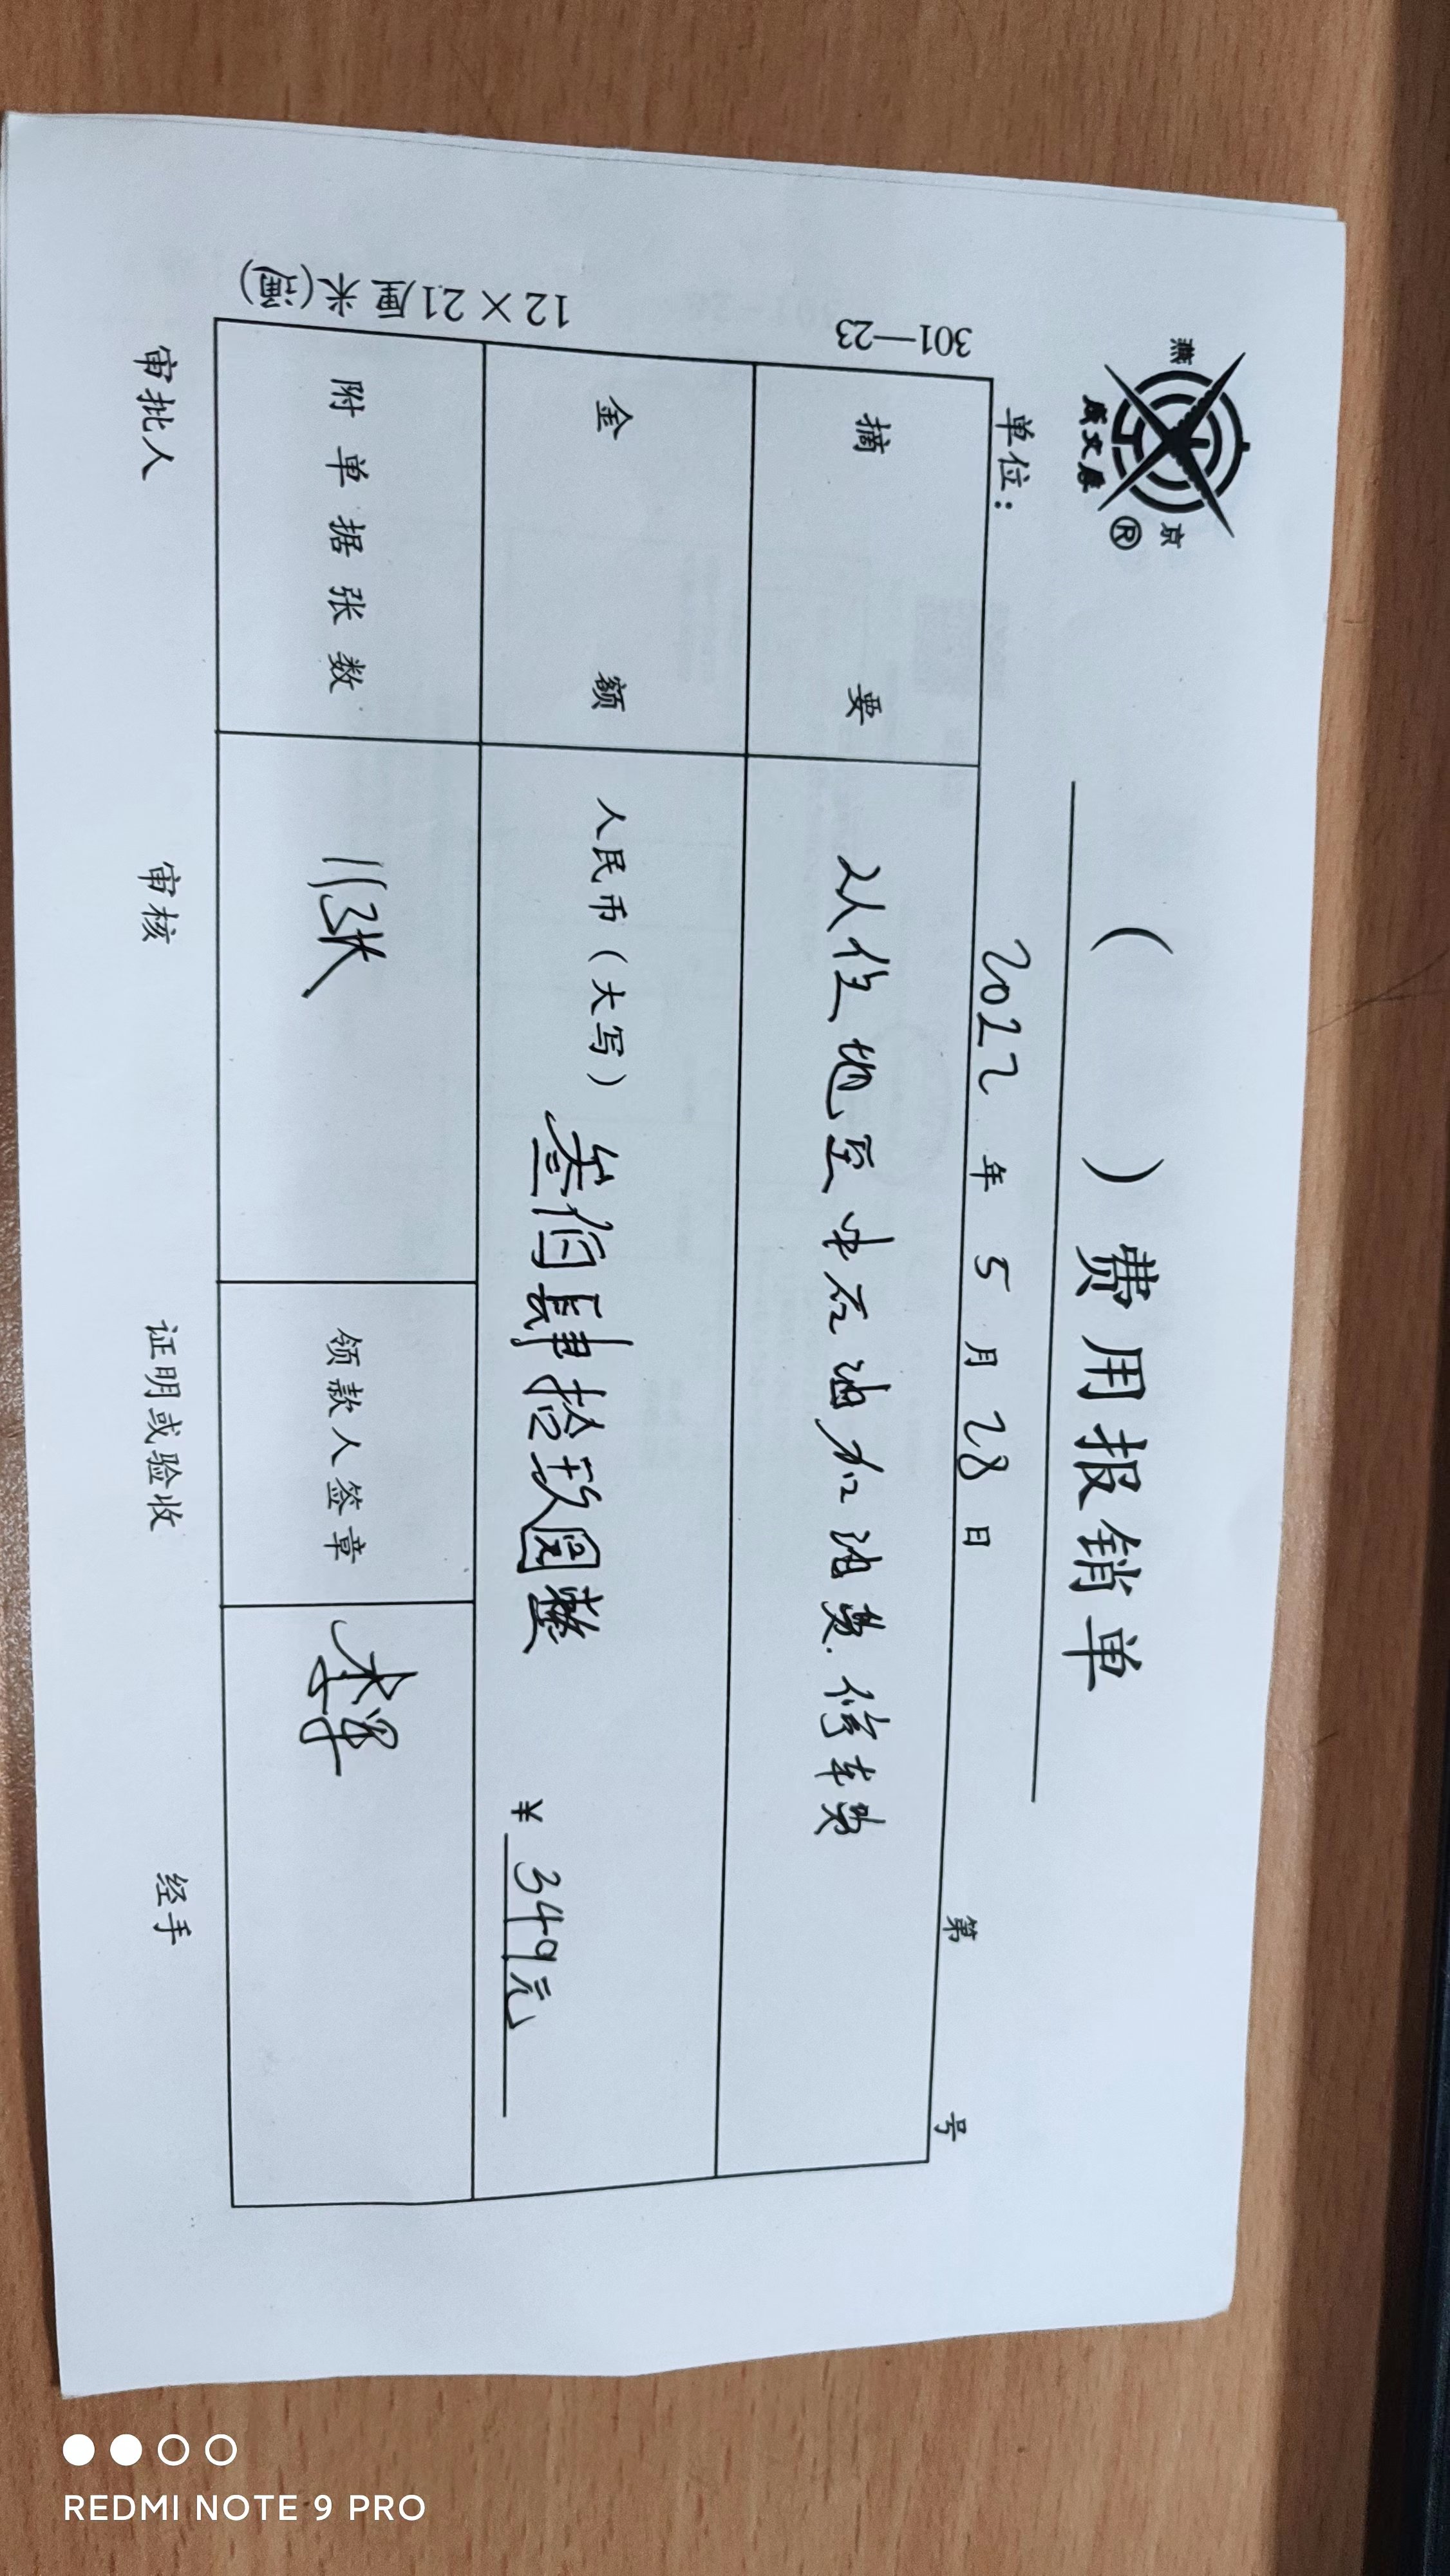 燕 京
成文厚 ®
( )费用报销单
单位: 2022年5月28日 第 号
301—23
摘 要 从住地至中石油加油费.停车费
12×21厘米(通)
金 额 人民币(大写)叁佰肆拾玖圆整 ¥349元
附单据张数 11张 领款人签章
审批人 审核 证明或验收 经手
REDMI NOTE 9 PRO